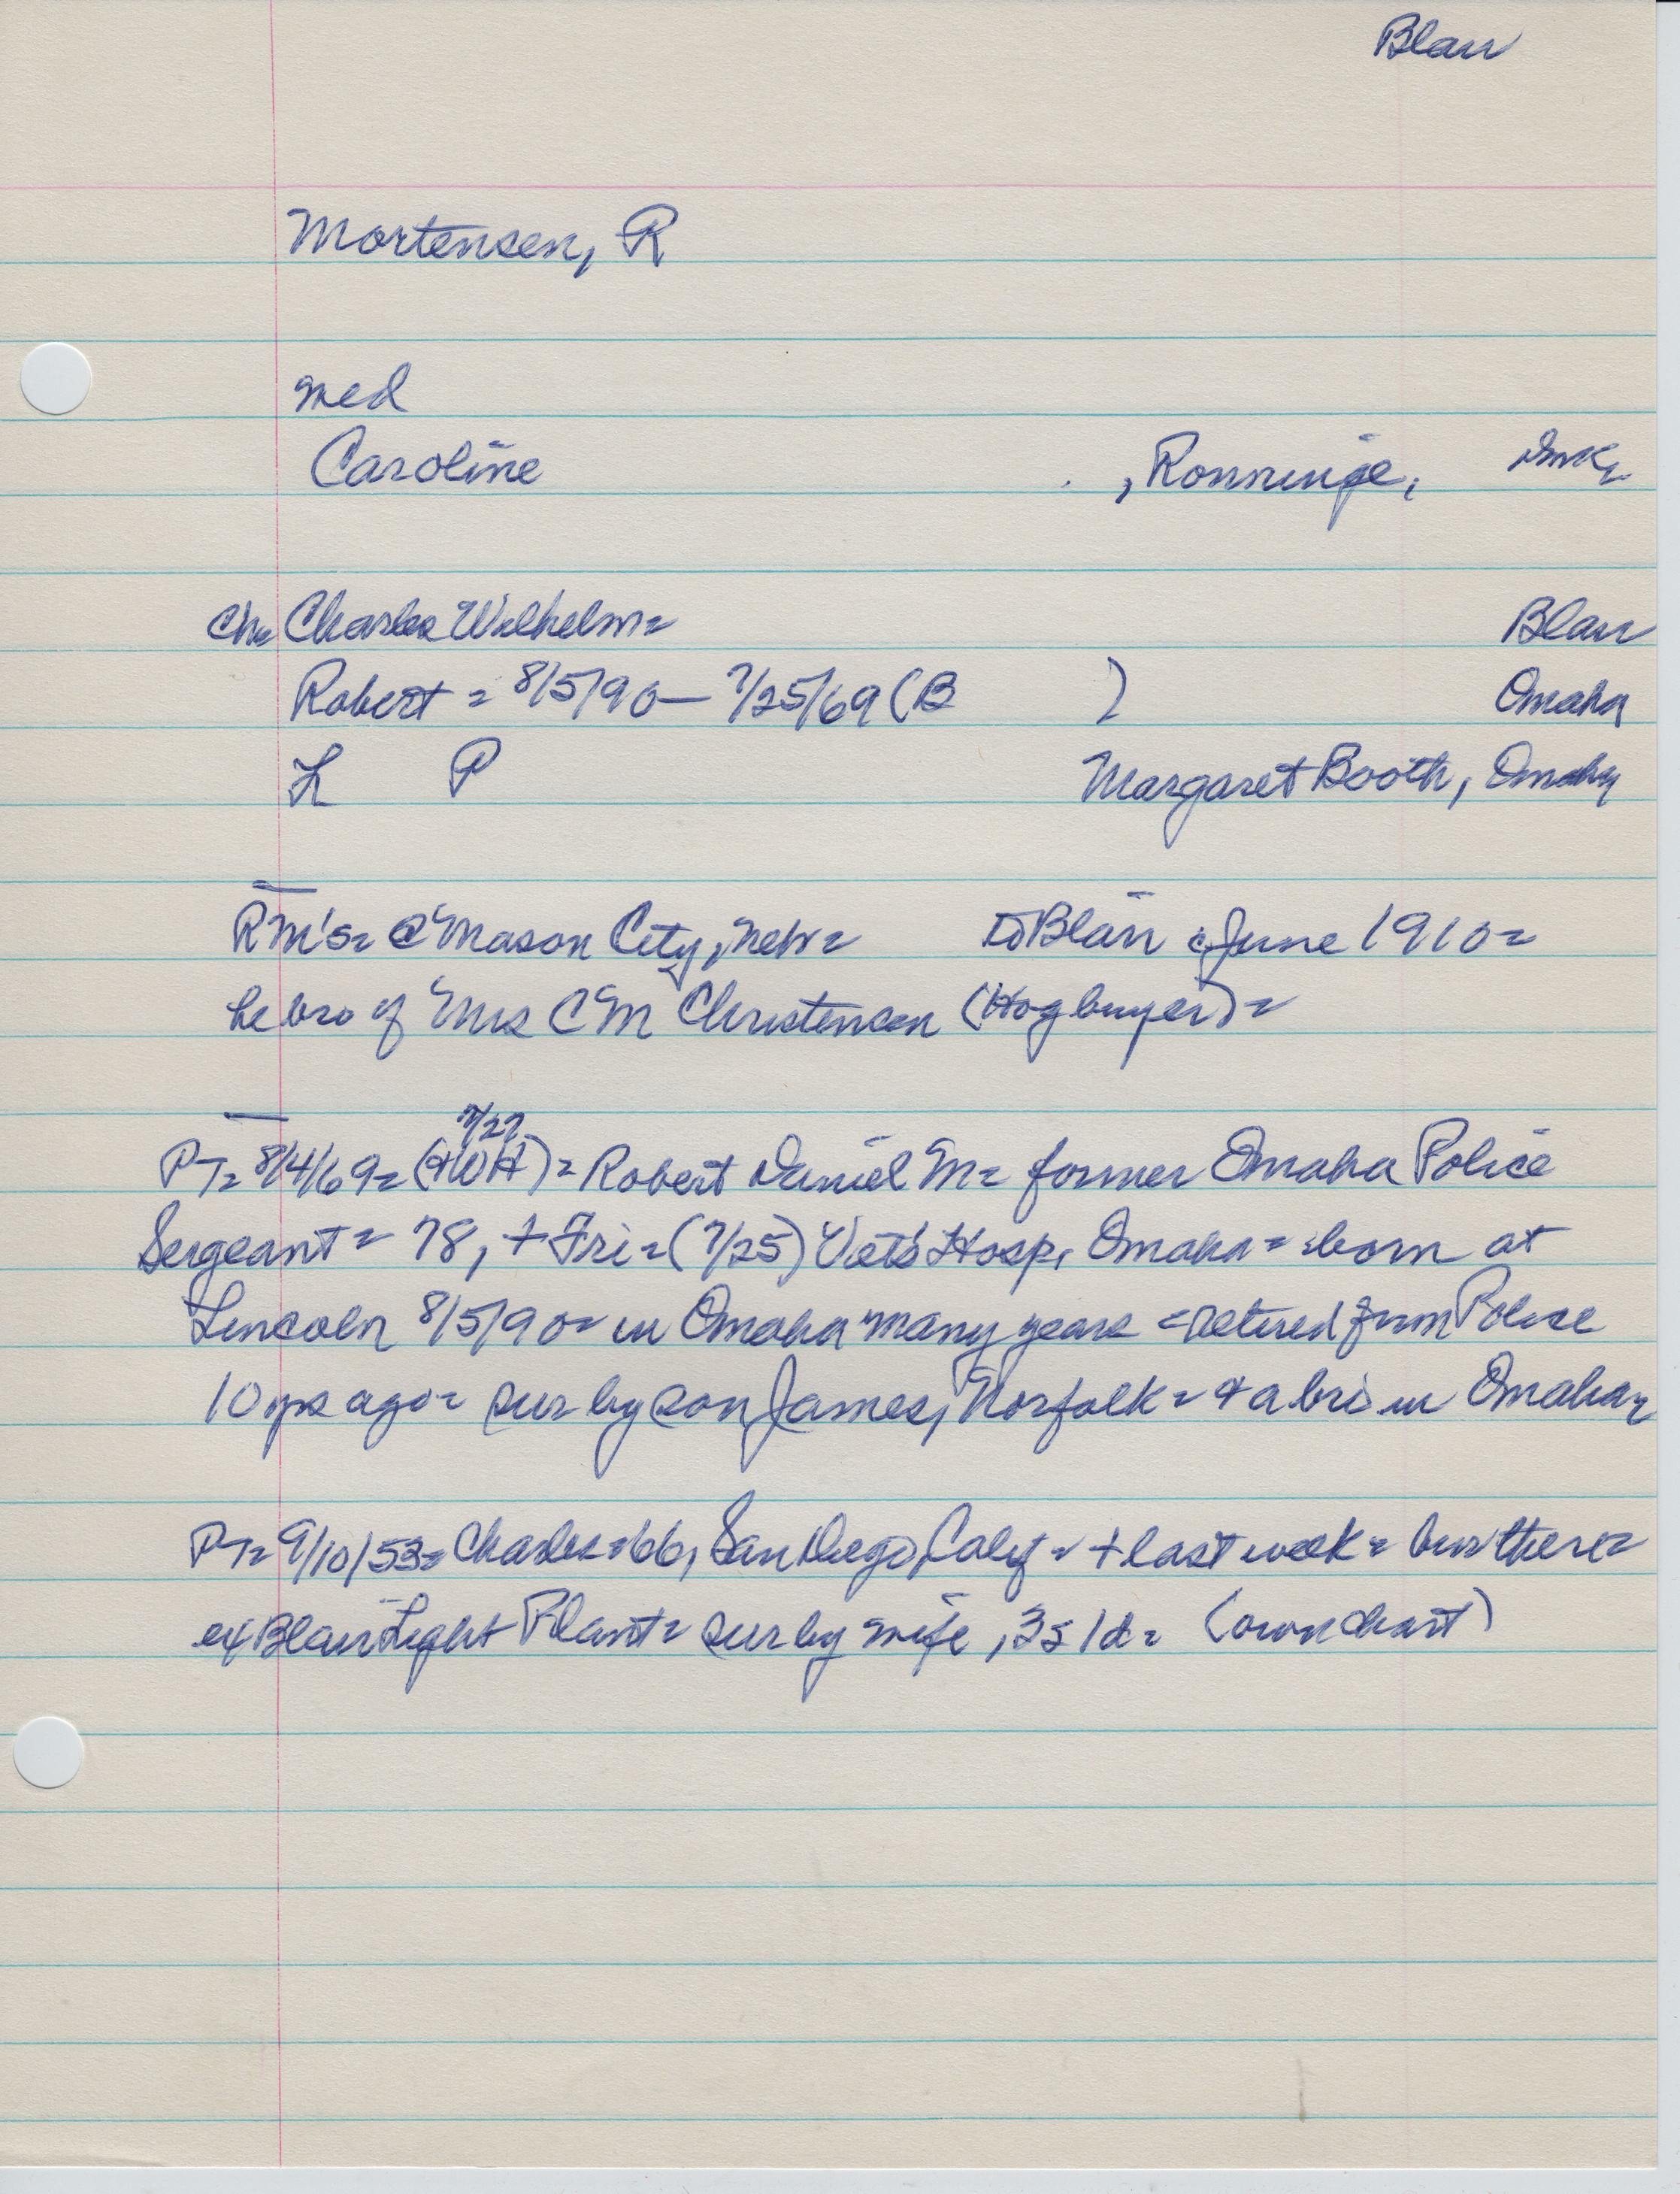 Blair
Mortensen, R
med
Caroline , Ronninge, Dmk=
Ch= Charles Wilhelm= Blair
Robert = 8/5/90 — 7/25/69 (B ) Omaha
L P Margaret Booth, Omaha
RM's= @ Mason City, Neb= to Blair June 1910=
he bro of Mrs CM Christensen (Hog buyer)=
7/27
PT= 8/4/69= (+WH)= Robert Daniel M= former Omaha Police
Sergeant= 78, + Fri= (7/25) Vets Hosp, Omaha= born at
Lincoln 8/5/90= in Omaha many years =retired from Police
10 yrs ago= sur by son James, Norfolk= + a bro in Omaha=
PT= 9/10/53= Charles=66, San Diego, Calif= + last week= bur there=
ex Blair Light Plant= sur by wife, 3s 1d= (own chart)